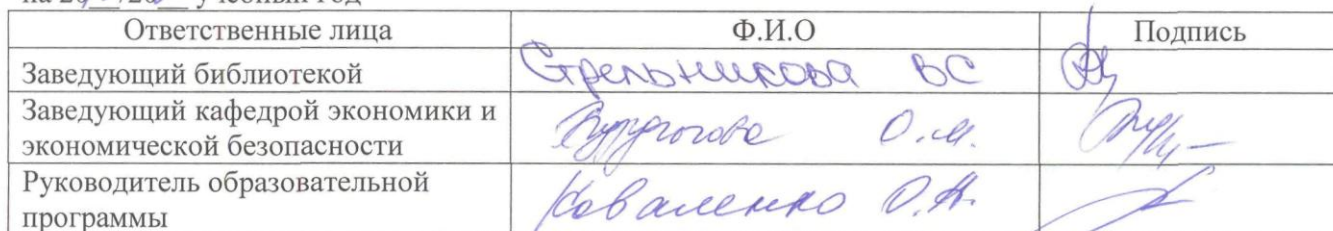 Ответственные лица Ф.И.О Подпись
Заведующий библиотекой Стрельникова ВС
Заведующий кафедрой экономики и
экономической безопасности О.М.
Руководитель образовательной
программы Коваленко О.Н.